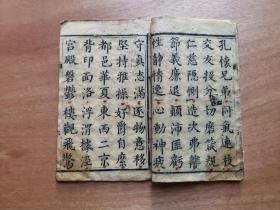 孔懷兄弟同氣連枝
交友投分切磨箴規
仁慈隱惻造次弗離
節義廉退顛沛匪虧
性靜情逸心動神疲
守真志滿逐物意移
堅持雅操好爵自縻
都邑華夏東西二京
背邙面洛浮渭據涇
宮殿盤鬱樓觀飛驚